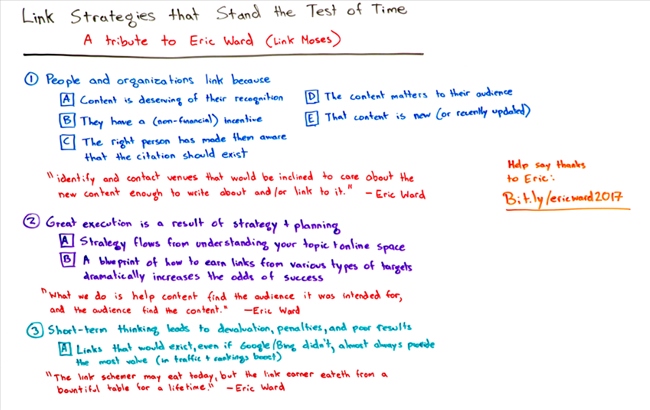 Link Strategies that Stand the Test of Time
A tribute to Eric Ward (Link Moses)
1 People and organizations link because
A Content is deserving of their recognition
B They have a (non-financial) incentive
C The right person has made them aware
that the citation should exist
D The content matters to their audience
E That content is new (or recently updated)
"identify and contact venues that would be inclined to care about the
new content enough to write about and/or link to it." - Eric Ward
Help say thanks
to Eric:
Bit.ly/ericward2017
2 Great execution is a result of strategy + planning
A Strategy flows from understanding your topic + online space
B A blueprint of how to earn links from various types of targets
dramatically increases the odds of success
"What we do is help content find the audience it was intended for,
and the audience find the content." -Eric Ward
3 Short-term thinking leads to devaluation, penalties, and poor results
A Links that would exist, even if Google/Bing didn't, almost always provide
the most value (in traffic + rankings boost)
"The link schemer may eat today, but the link earner eateth from a
bountiful table for a lifetime." - Eric Ward